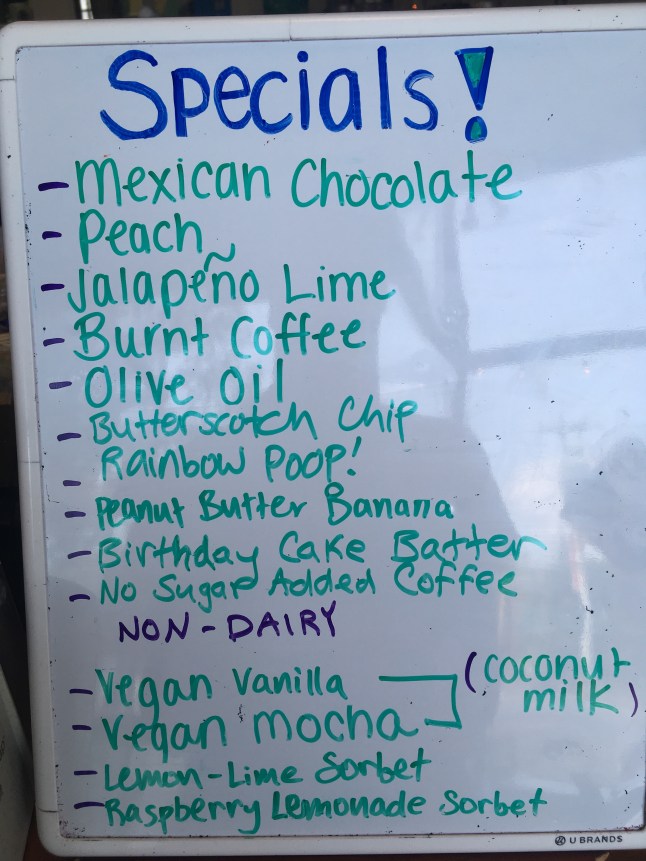 Specials!
- Mexican Chocolate
- Peach
- Jalapeño Lime
- Burnt Coffee
- Olive Oil
- Butterscotch Chip
- Rainbow Poop!
- Peanut Butter Banana
- Birthday Cake Batter
- No Sugar Added Coffee
NON-DAIRY
- Vegan Vanilla
- Vegan mocha
(coconut
milk)
- Lemon-Lime Sorbet
- Raspberry Lemonade Sorbet
U BRANDS